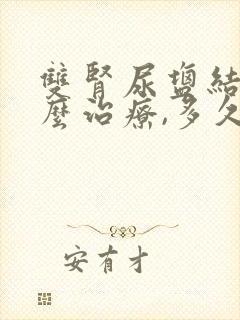 雙腎尿鹽結
麼治療,多久
安有才